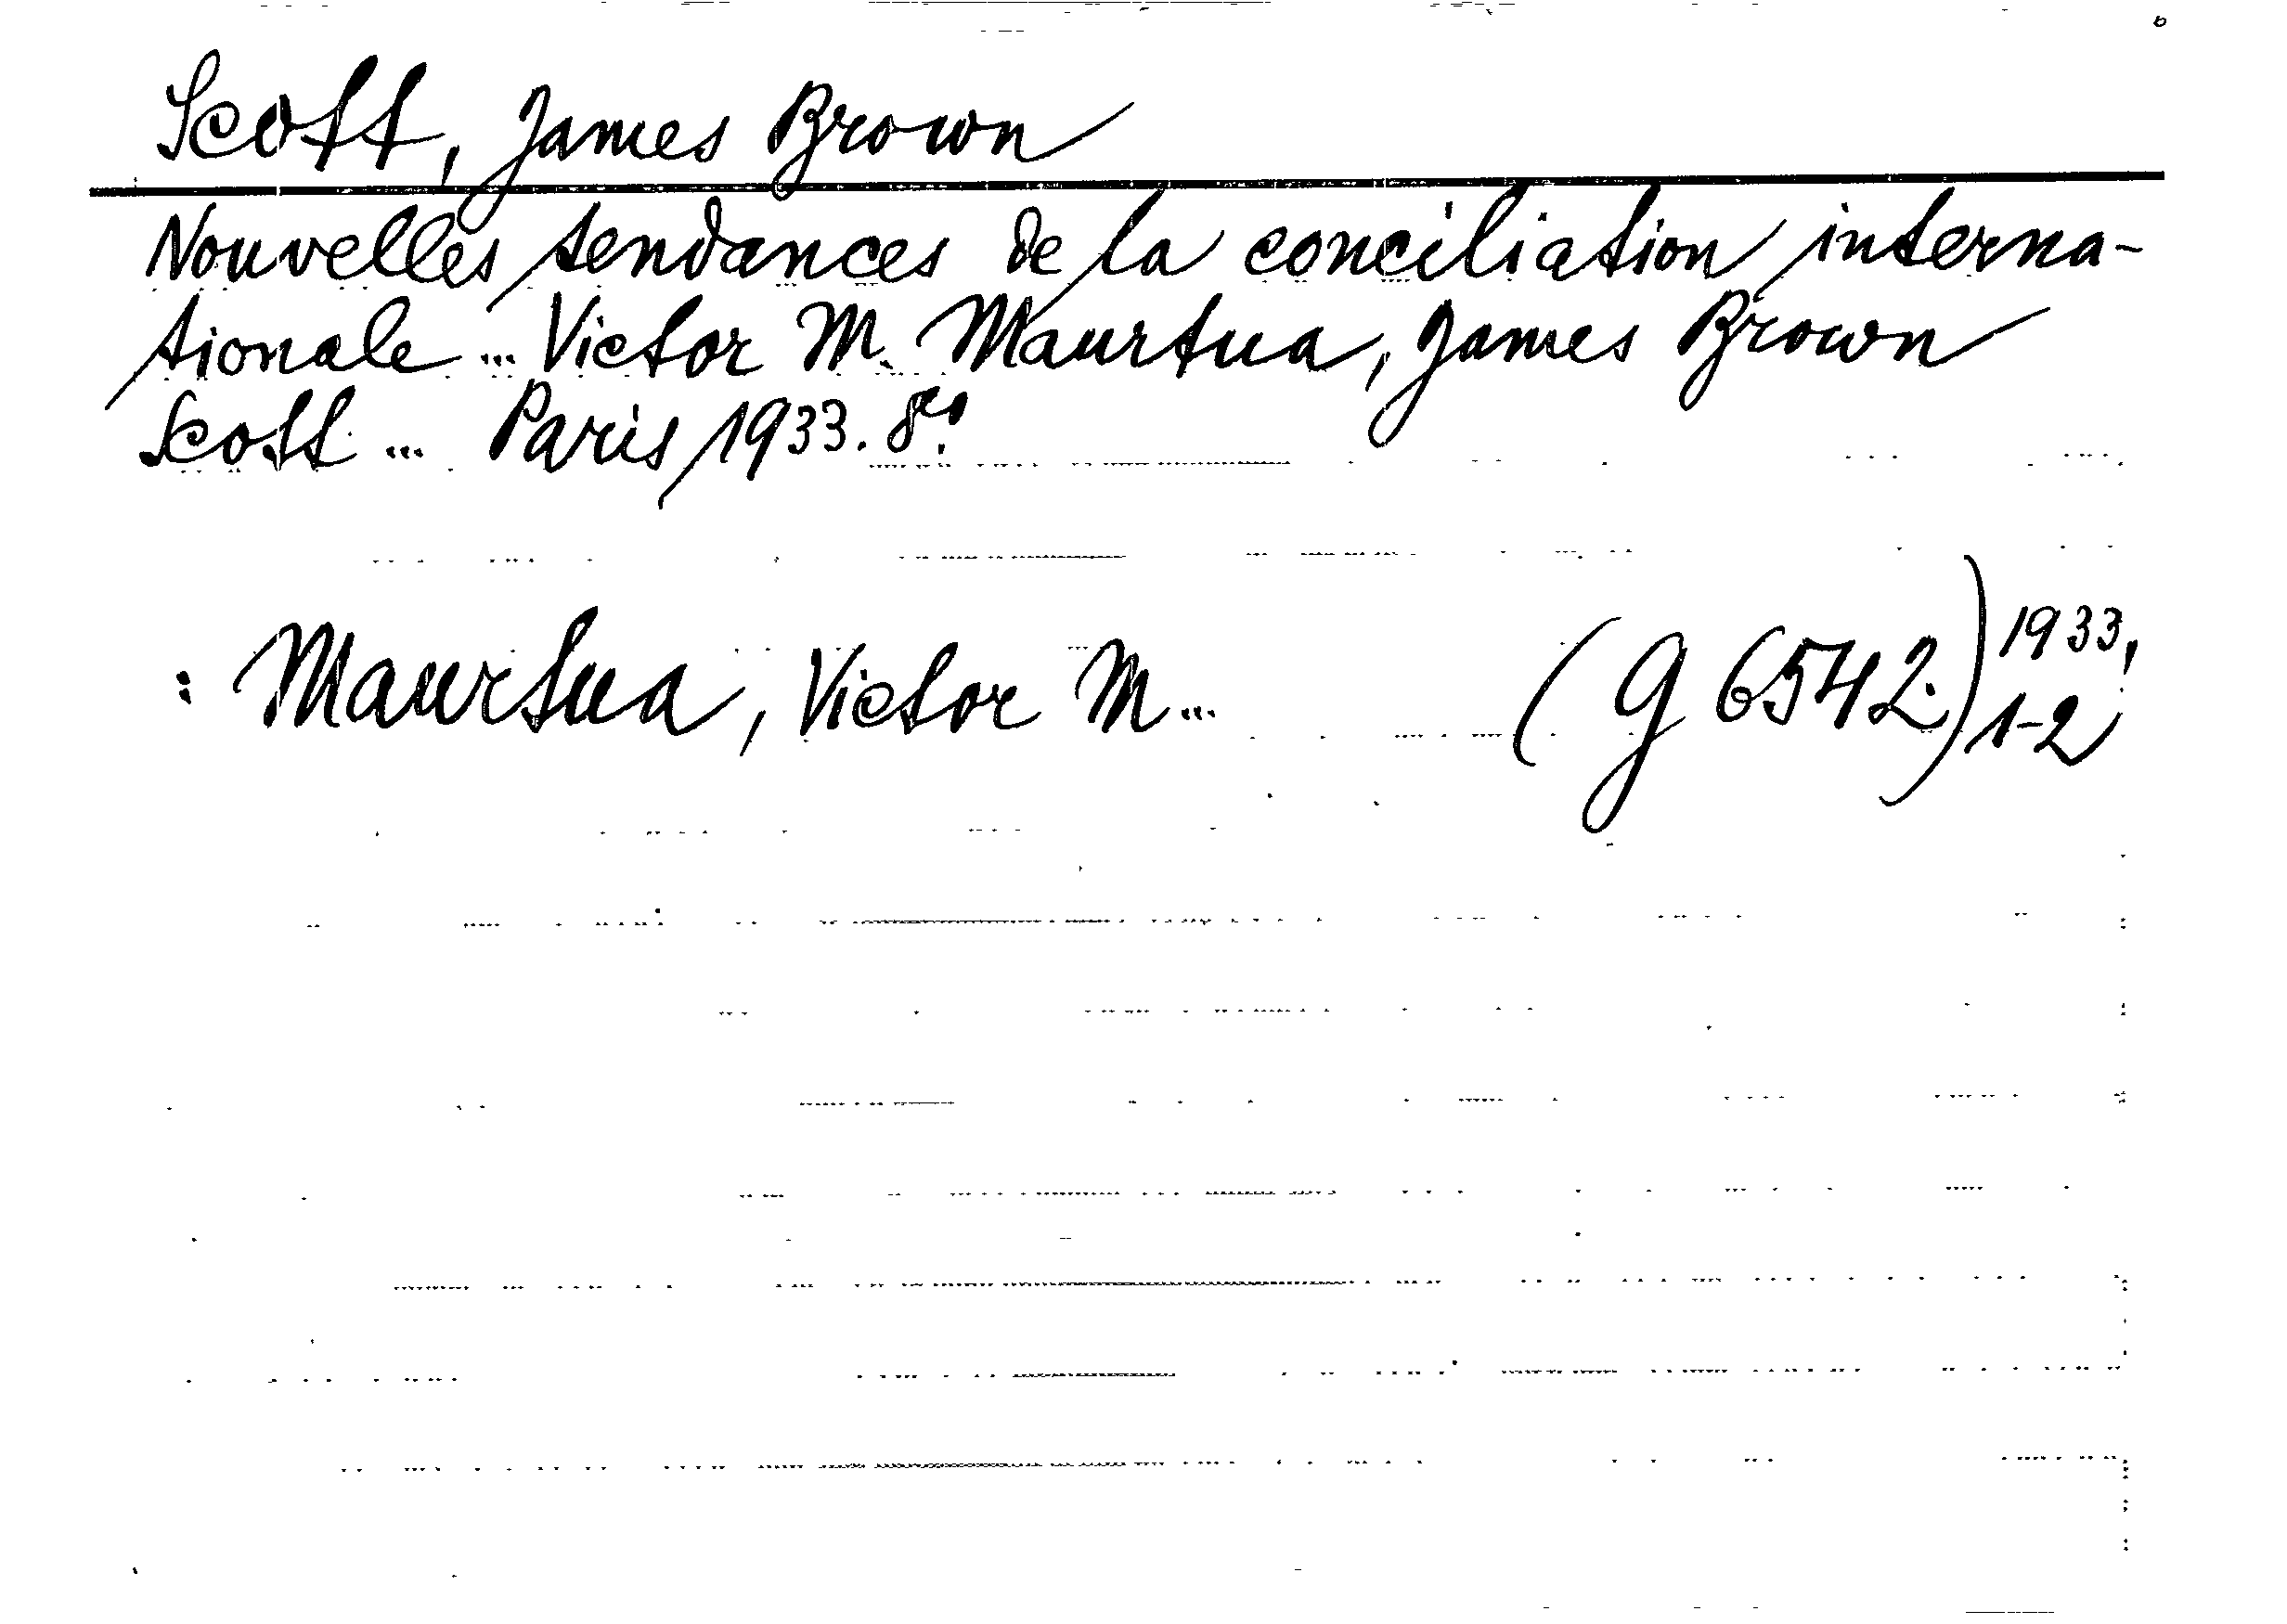 Scott, James Brown
Nouvelles tendances de la conciliation interna-
tionale ... Victor M. Maurtua, James Brown
Scott ... Paris 1933. 8°.
: Maurtua, Victor M... (G 6542) 1933,
1-2